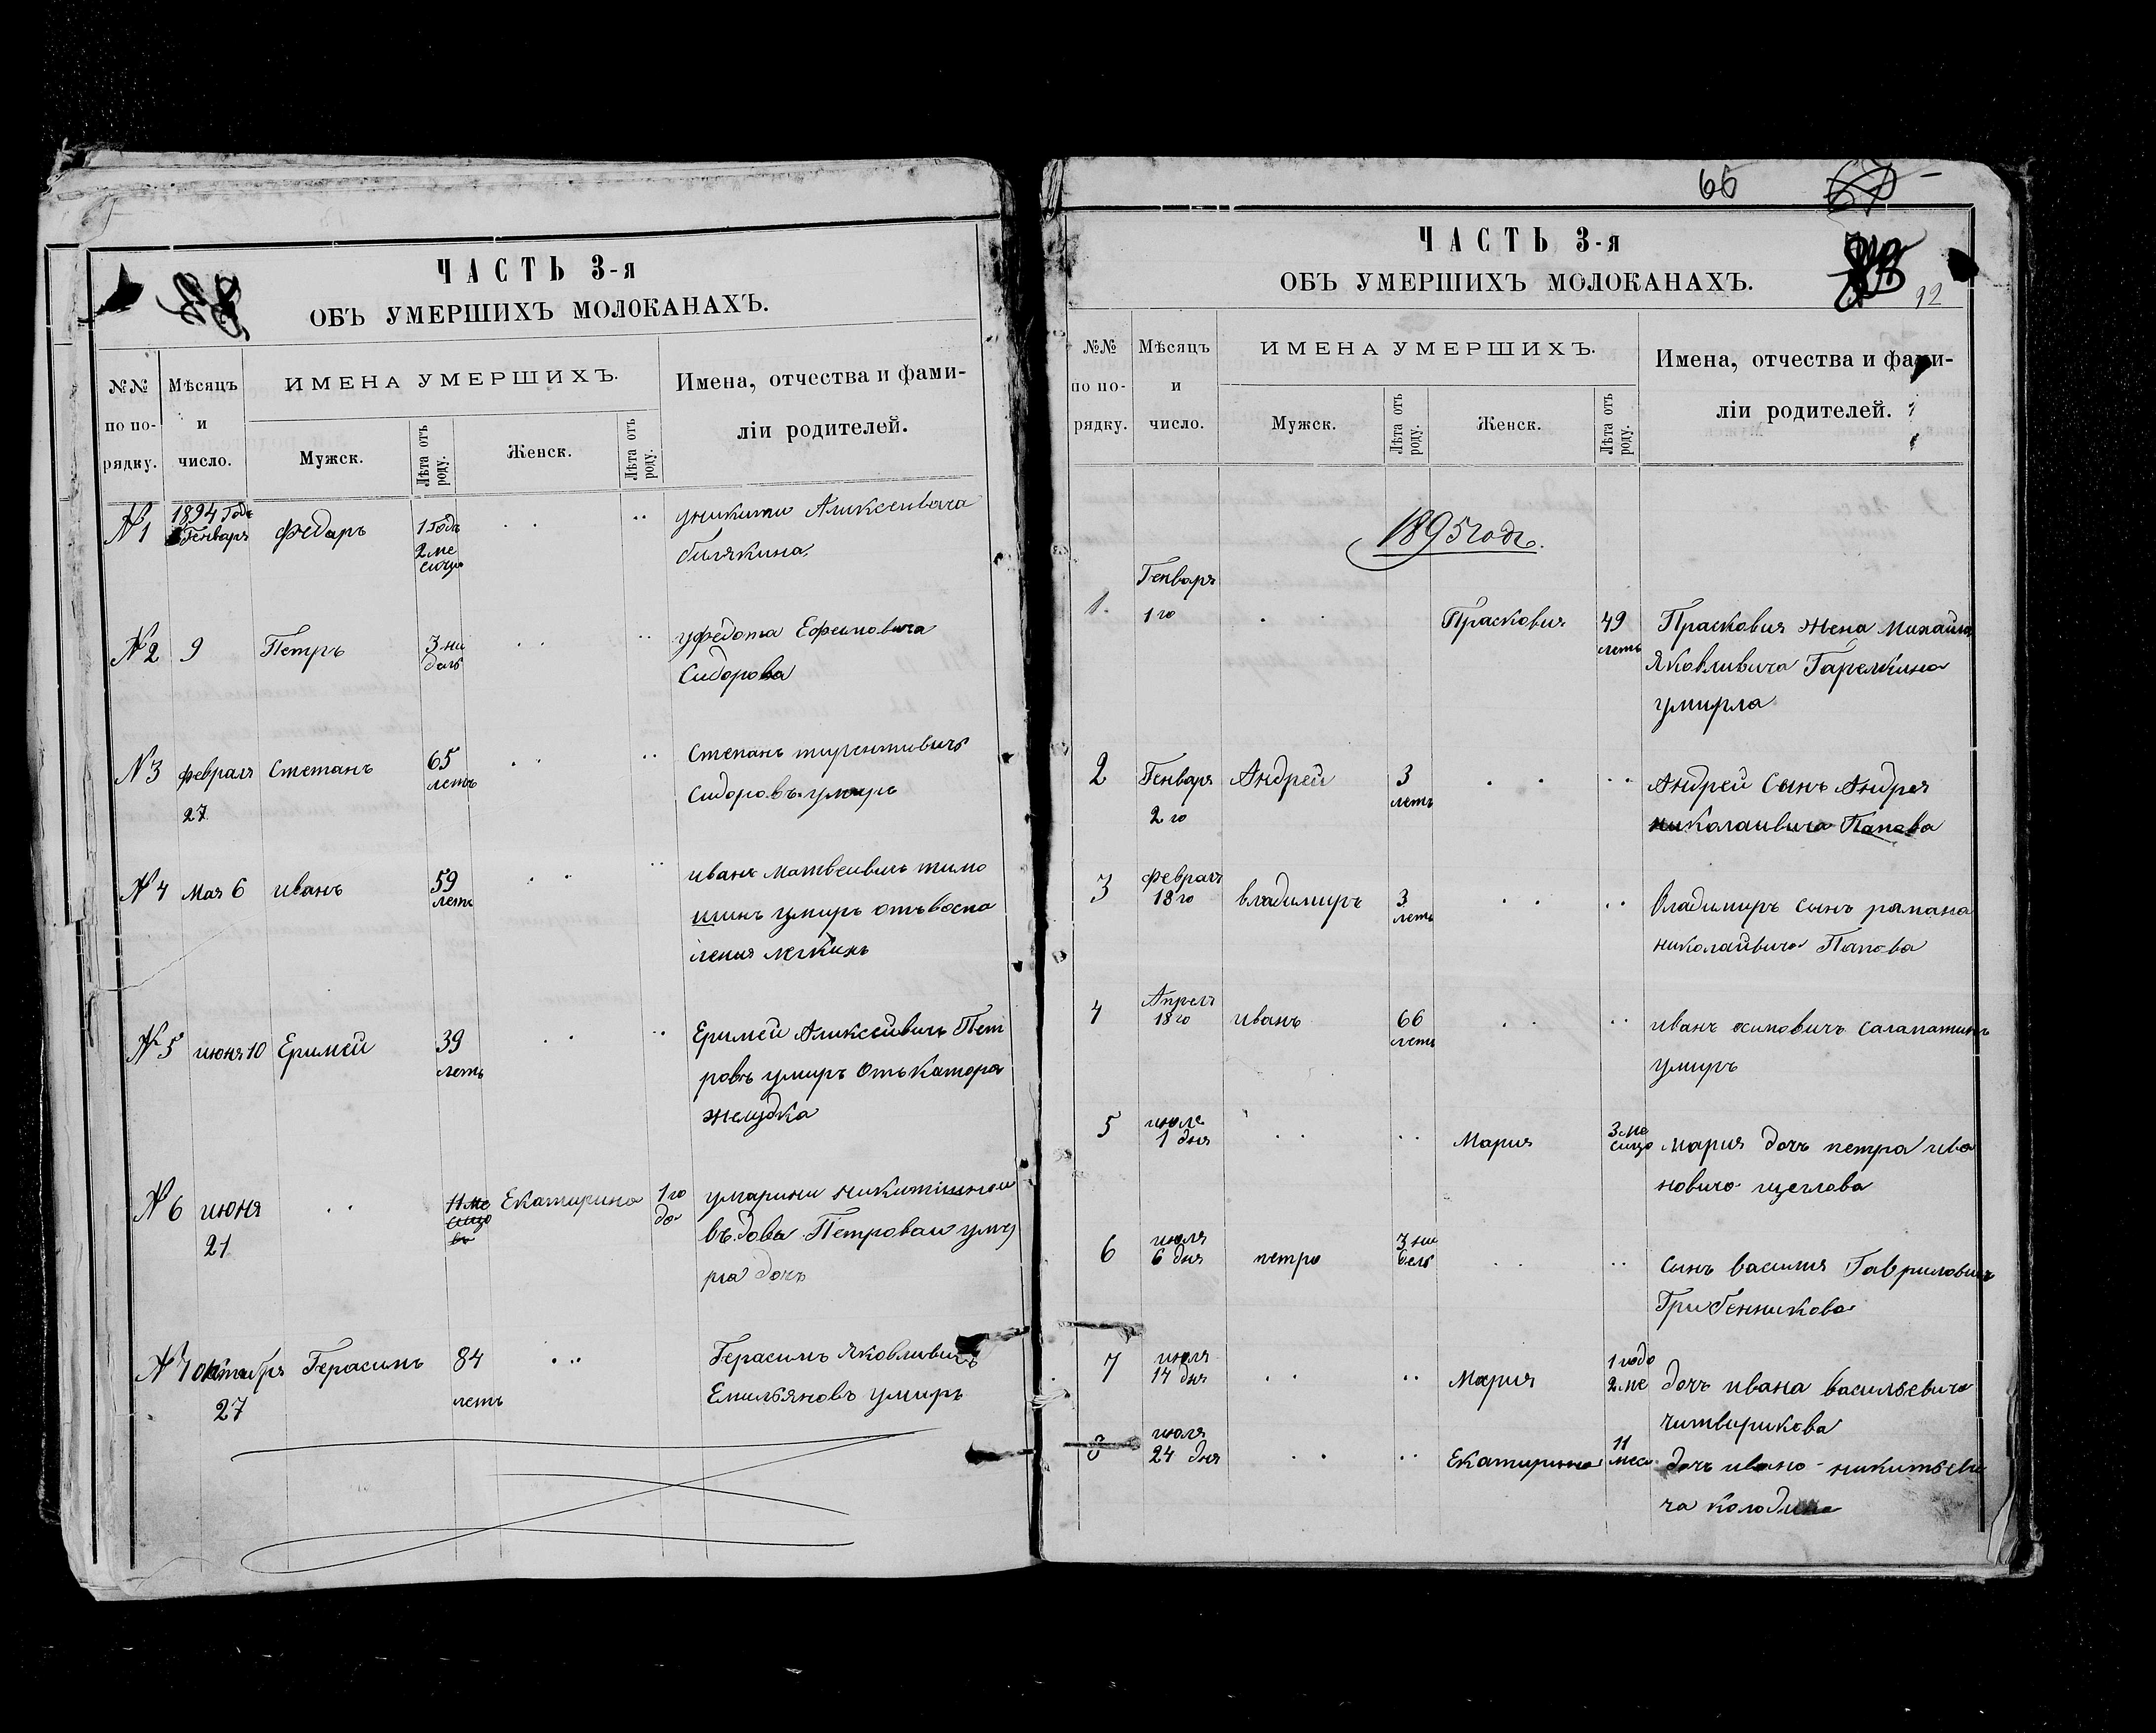 ЧАСТЬ 3-я
ОБЪ УМЕРШИХЪ МОЛОКАНАХЪ.
№№ по по-рядку.
Мѣсяцъ и число.
ИМЕНА УМЕРШИХЪ.
Мужск.
Лѣта отъ роду.
Женск.
Лѣта отъ роду.
Имена, отчества и фами-
ліи родителей.
№1 1894 Годъ Генваря федаръ 1 Годъ 2 ме сица уникити Аликсеивича
билякина
№2 9 Петръ 3 ни дель уфедота Ефимовича
Сидорова
№3 февраля 27 Степанъ 65 летъ Степанъ тирентивичъ
Сидоровъ умиръ
№4 Мая 6 иванъ 59 летъ иванъ матвеивичъ тимо
шинъ умиръ отъ воспа
ления легкихъ
№5 июня 10 Еримей 39 летъ Еримей Аликсеивичъ Пет
ровъ умиръ Отъ катара
желудка
№6 июня 21 11 ме сицо въ Екатирина 1 го да умарии никитишной
въдовы Петровай уми
рла дочъ
№7 октября 27 Герасимъ 84 летъ Герасимъ Яковливичъ
Емильяновъ умиръ
66
92
ЧАСТЬ 3-я
ОБЪ УМЕРШИХЪ МОЛОКАНАХЪ.
№№ по по-рядку.
Мѣсяцъ и число.
ИМЕНА УМЕРШИХЪ.
Мужск.
Лѣта отъ роду.
Женск.
Лѣта отъ роду.
Имена, отчества и фами-
ліи родителей.
1895 годъ.
1. Генваря 1 го Прасковия 49 летъ Прасковия жена Михаила
Яковливича Гарелкина
умирла
2 Генваря 2 го Андрей 3 летъ Андрей Сынъ Андрея
николаивича Папова
3 февраля 18 го владимиръ 3 летъ Владимиръ сынъ рамана
николаивича Папова
4 Апреля 18 го иванъ 66 летъ иванъ осиповичъ салапатинъ
умиръ
5 июля 1 дня Мария 3 ме сицо мария дочъ петра ива
новича щеглова
6 июля 6 дня петро 3 ни дель сынъ василия Гавриловича
Грибенникова
7 июля 14 дня Мария 1 годо 2 ме дочъ ивана васильевича
читвирикова
8 июля 24 дня Екатирина 11 меся дочъ ивана никитьеви
ча Колодина